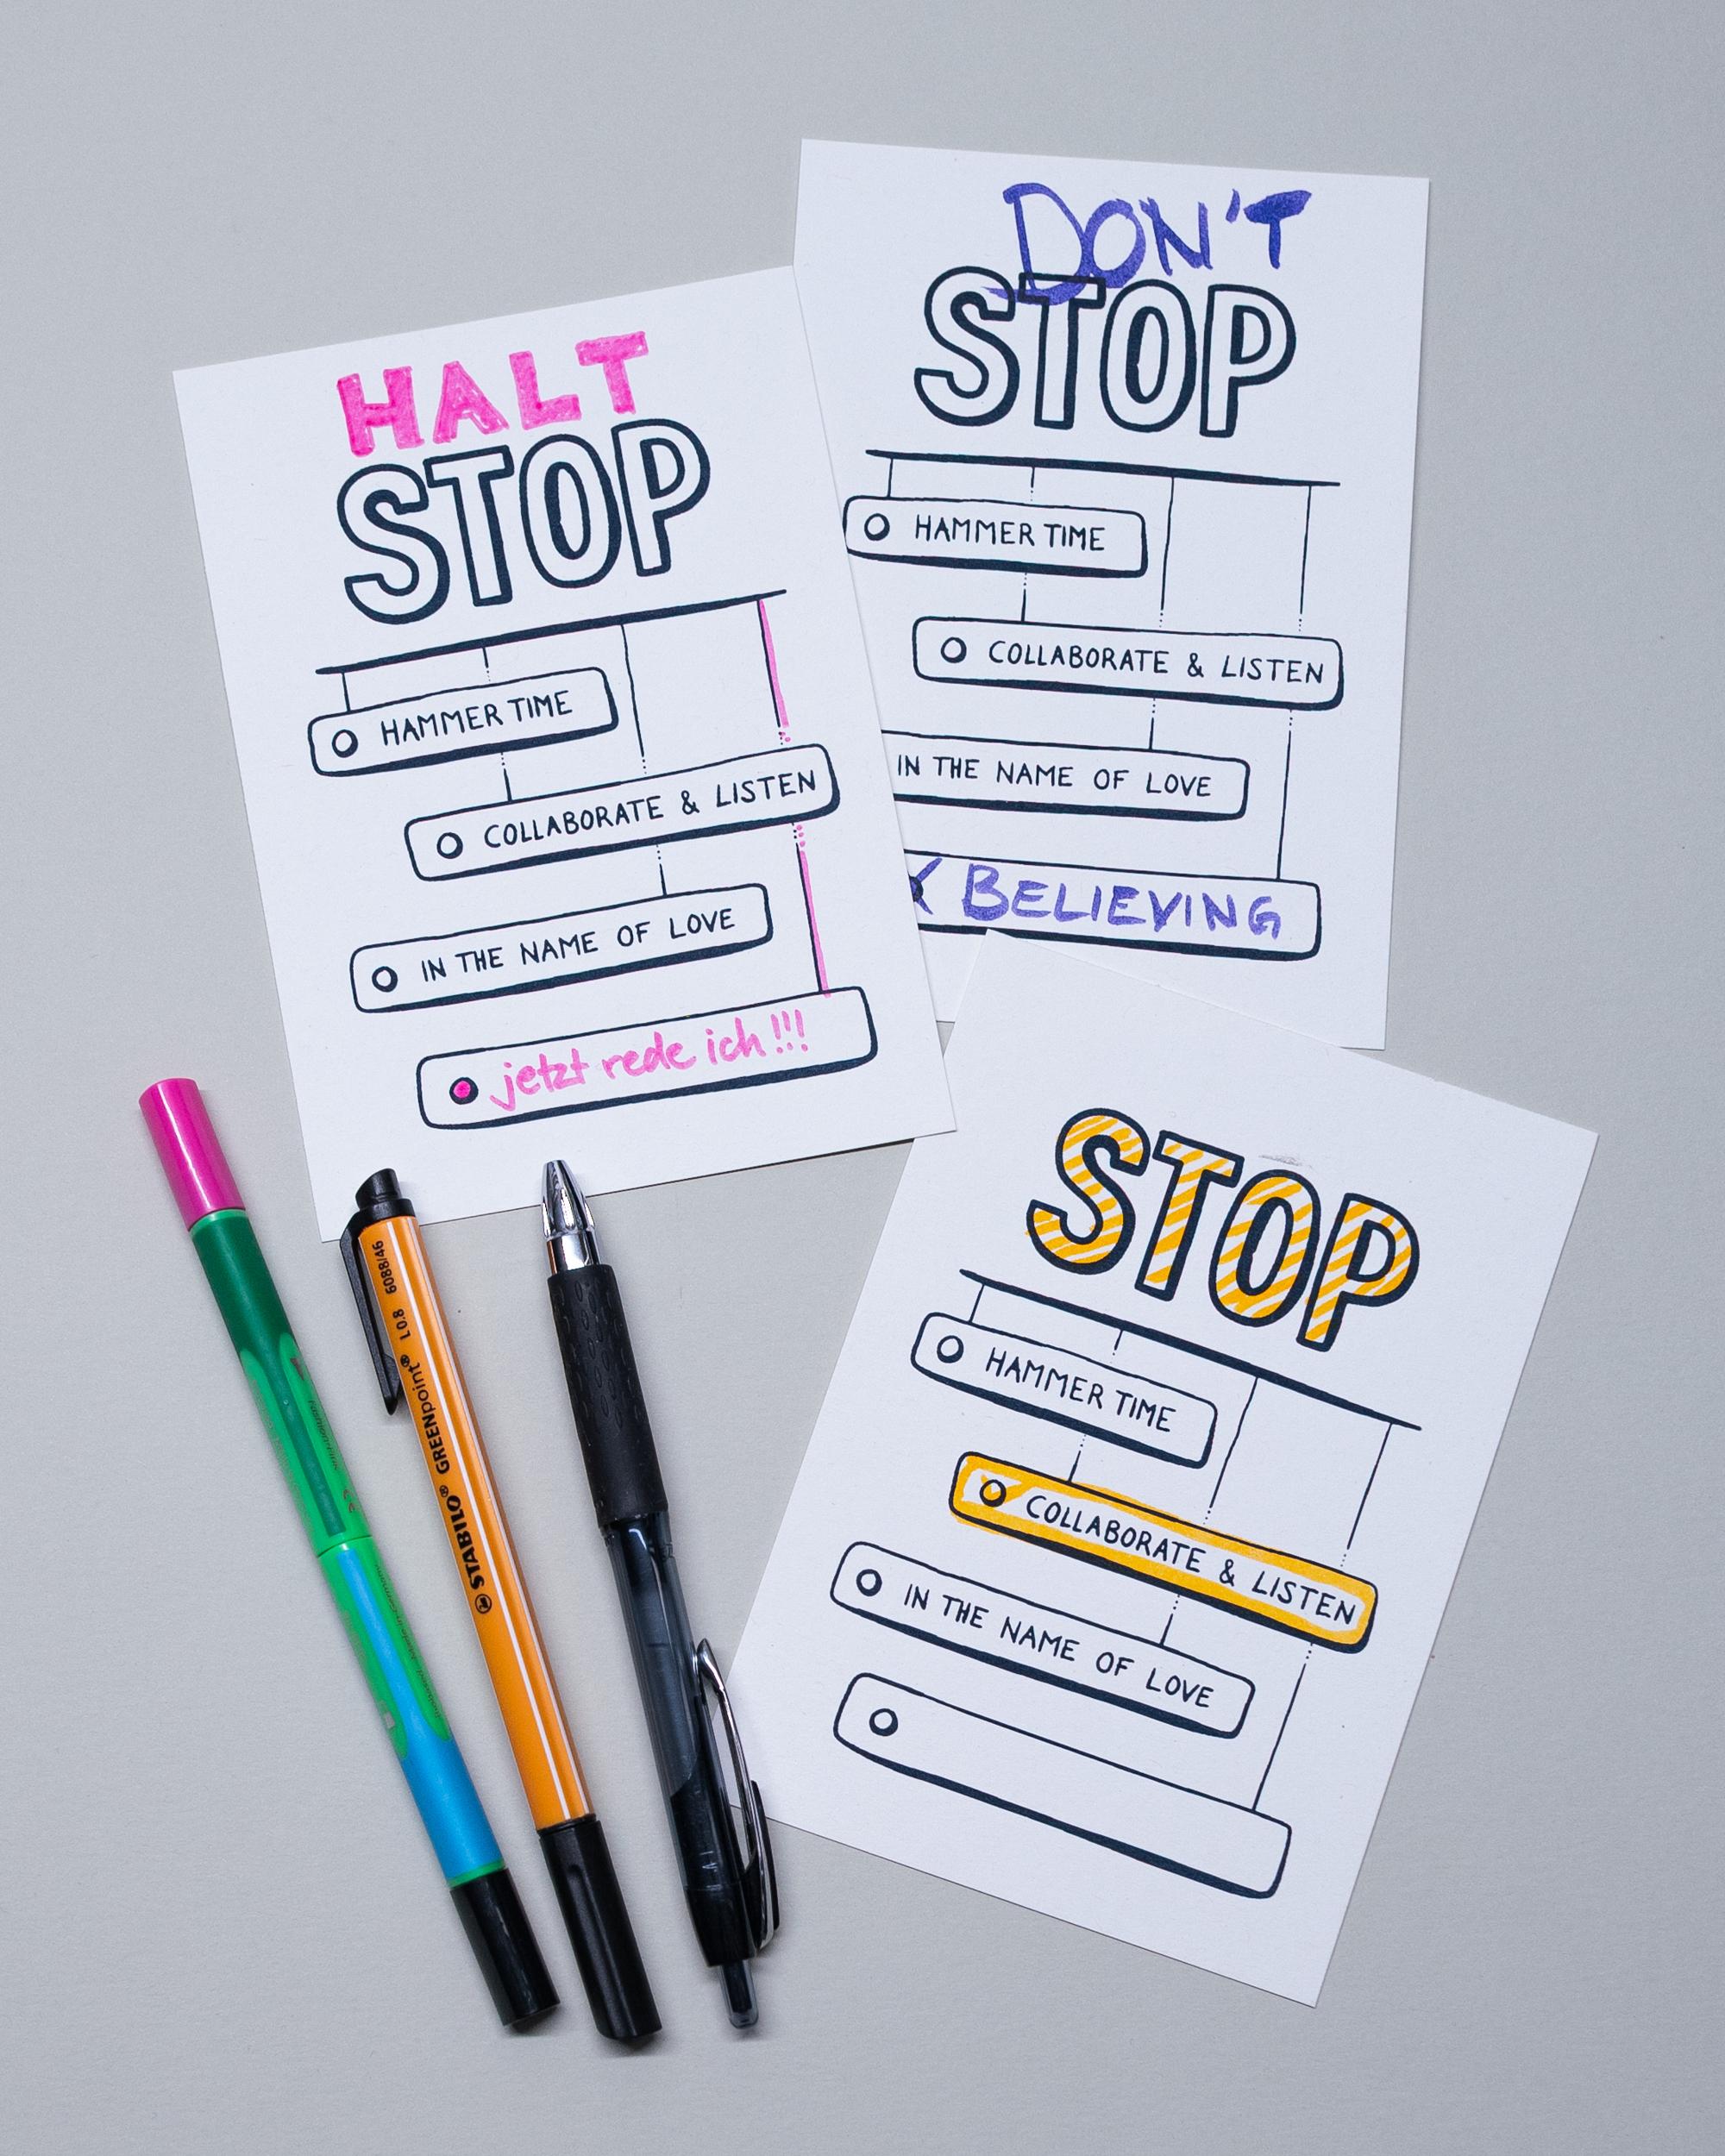 HALT
STOP
HAMMER TIME
COLLABORATE & LISTEN
IN THE NAME OF LOVE
jetzt rede ich!!!
DON'T
STOP
HAMMER TIME
COLLABORATE & LISTEN
IN THE NAME OF LOVE
BELIEVING
STOP
HAMMER TIME
COLLABORATE & LISTEN
IN THE NAME OF LOVE
STABILO® GREENpoint® L 0.8 6088/46